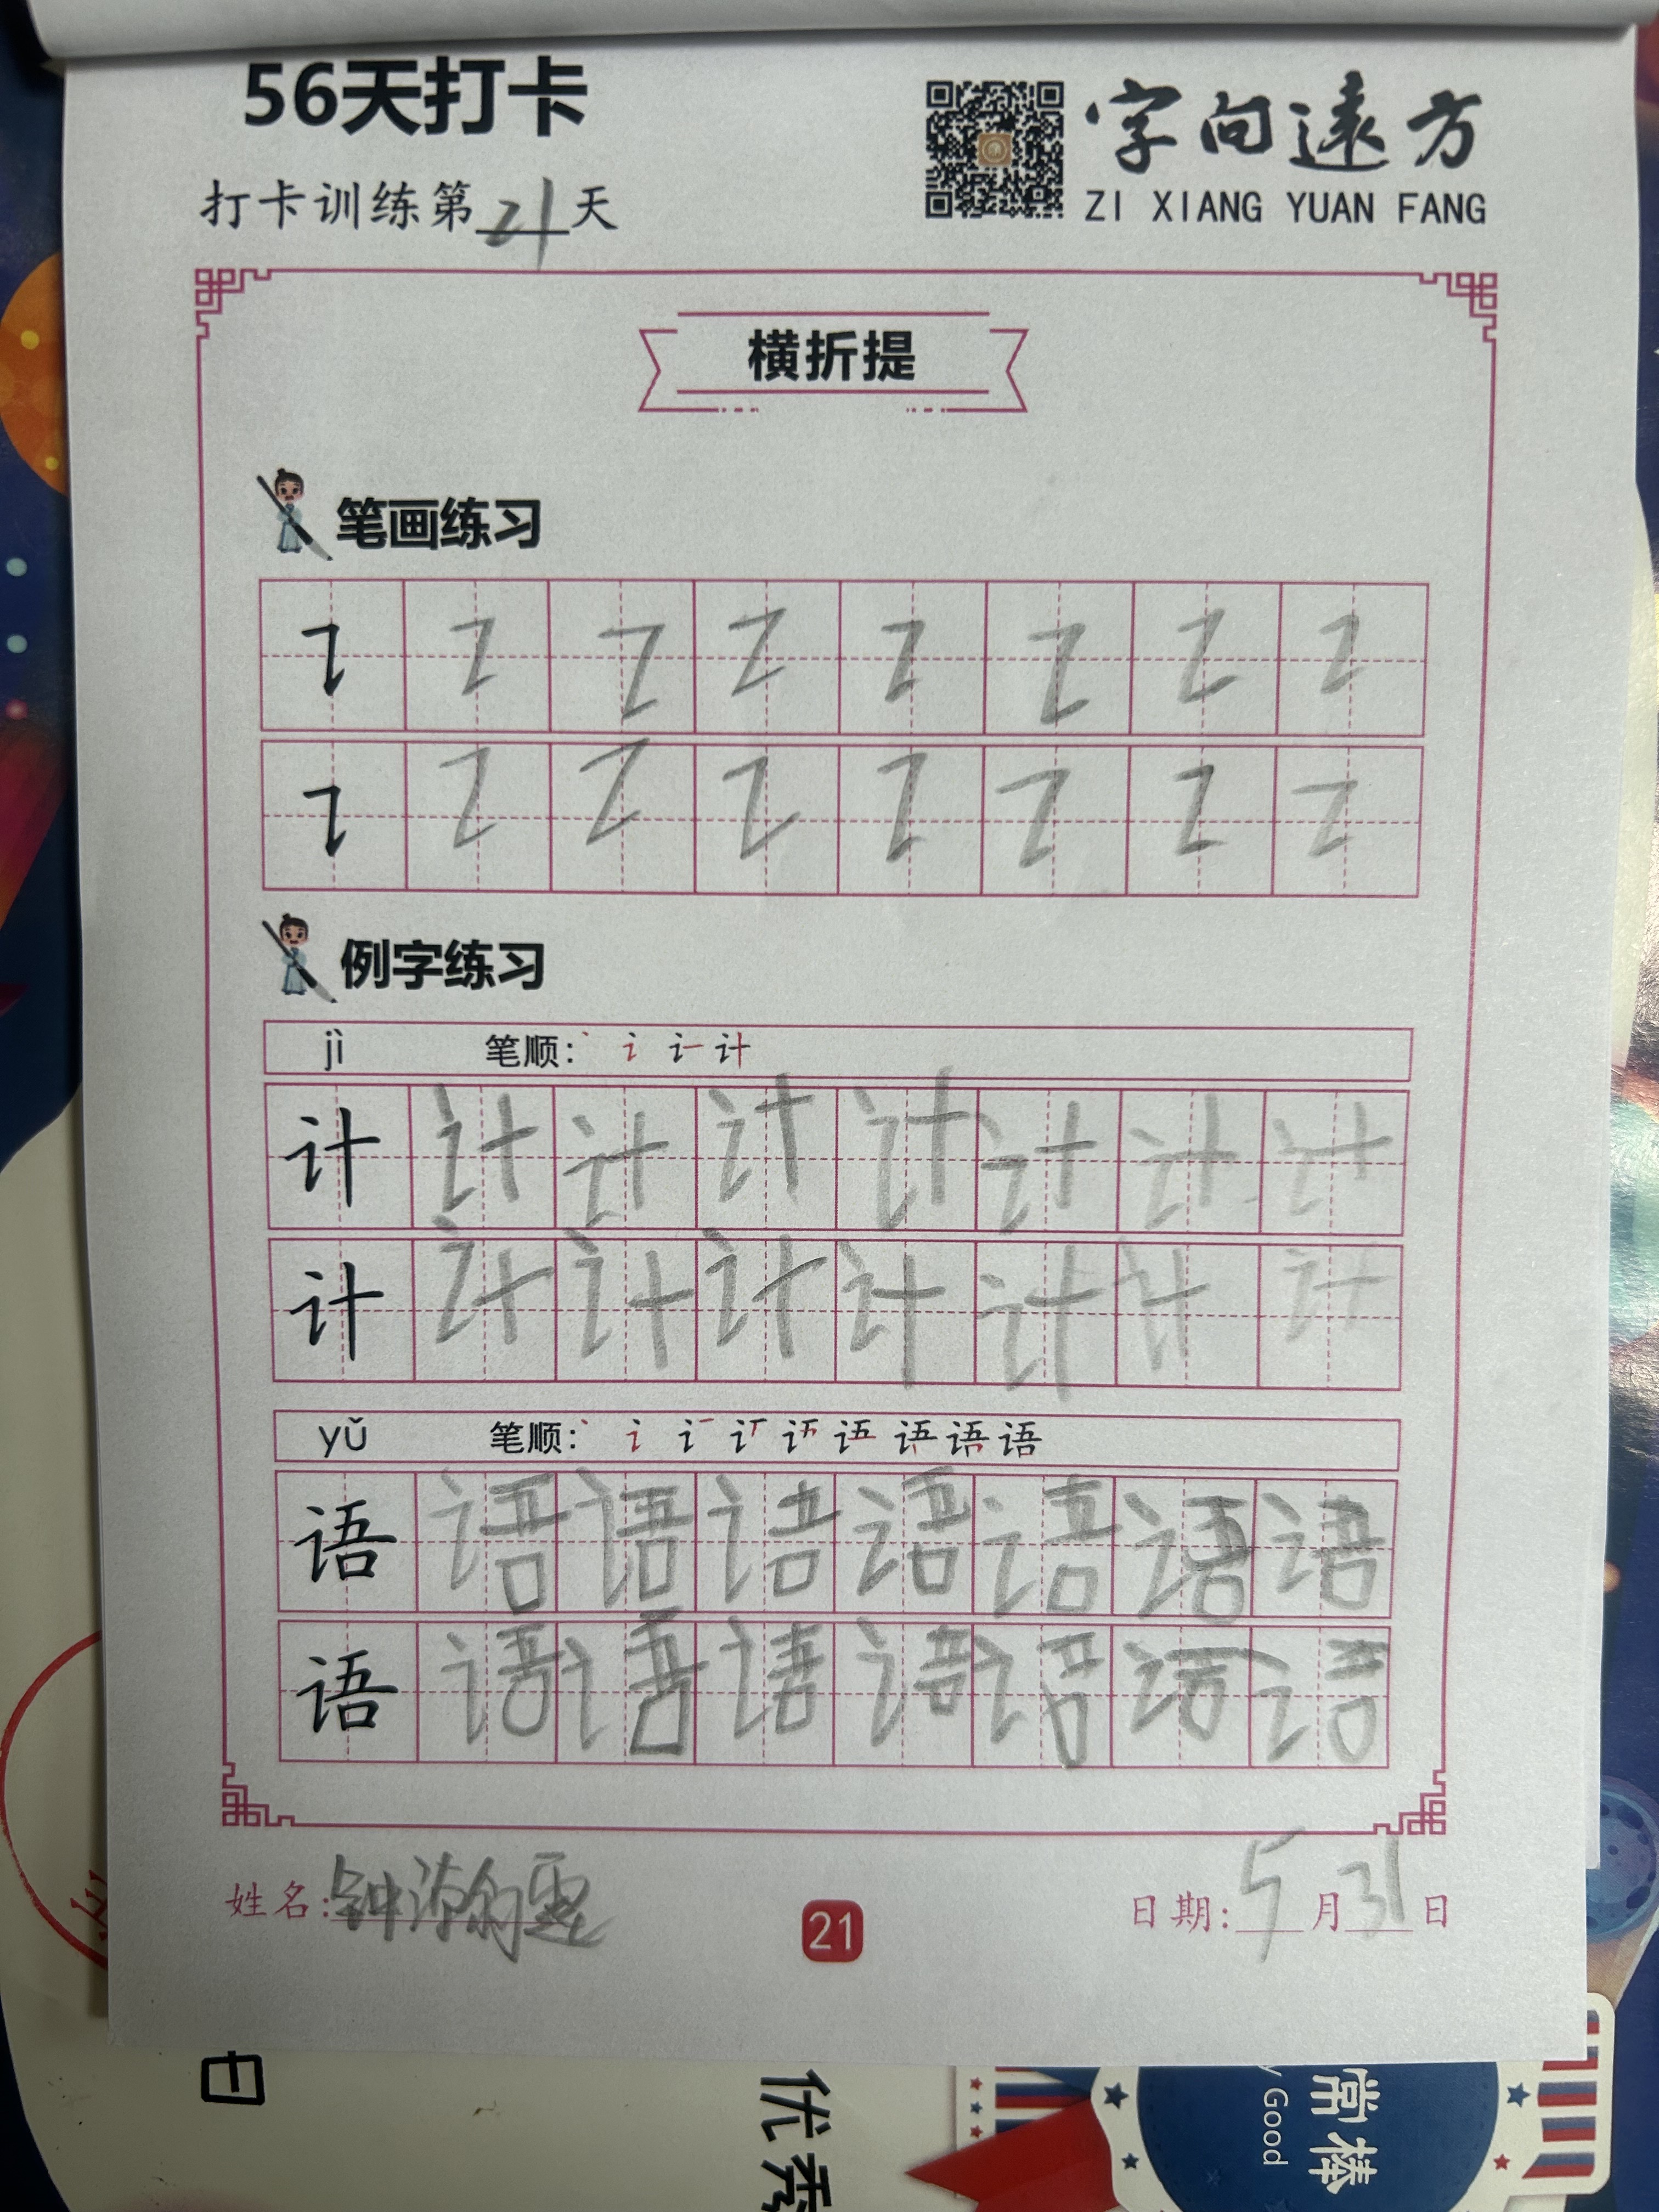 56天打卡
字向遠方
打卡训练第21天
ZI XIANG YUAN FANG
横折提
笔画练习
例字练习
jì 笔顺: 丶 讠 计
计 计 计 计 计 计 计 计
计 计 计 计 计 计 计 计
yǔ 笔顺: 丶 讠 语
语 语 语 语 语 语 语 语
语 语 语 语 语 语 语 语
姓名:钟 21 日期:5月31日
日
优秀
常棒
Good